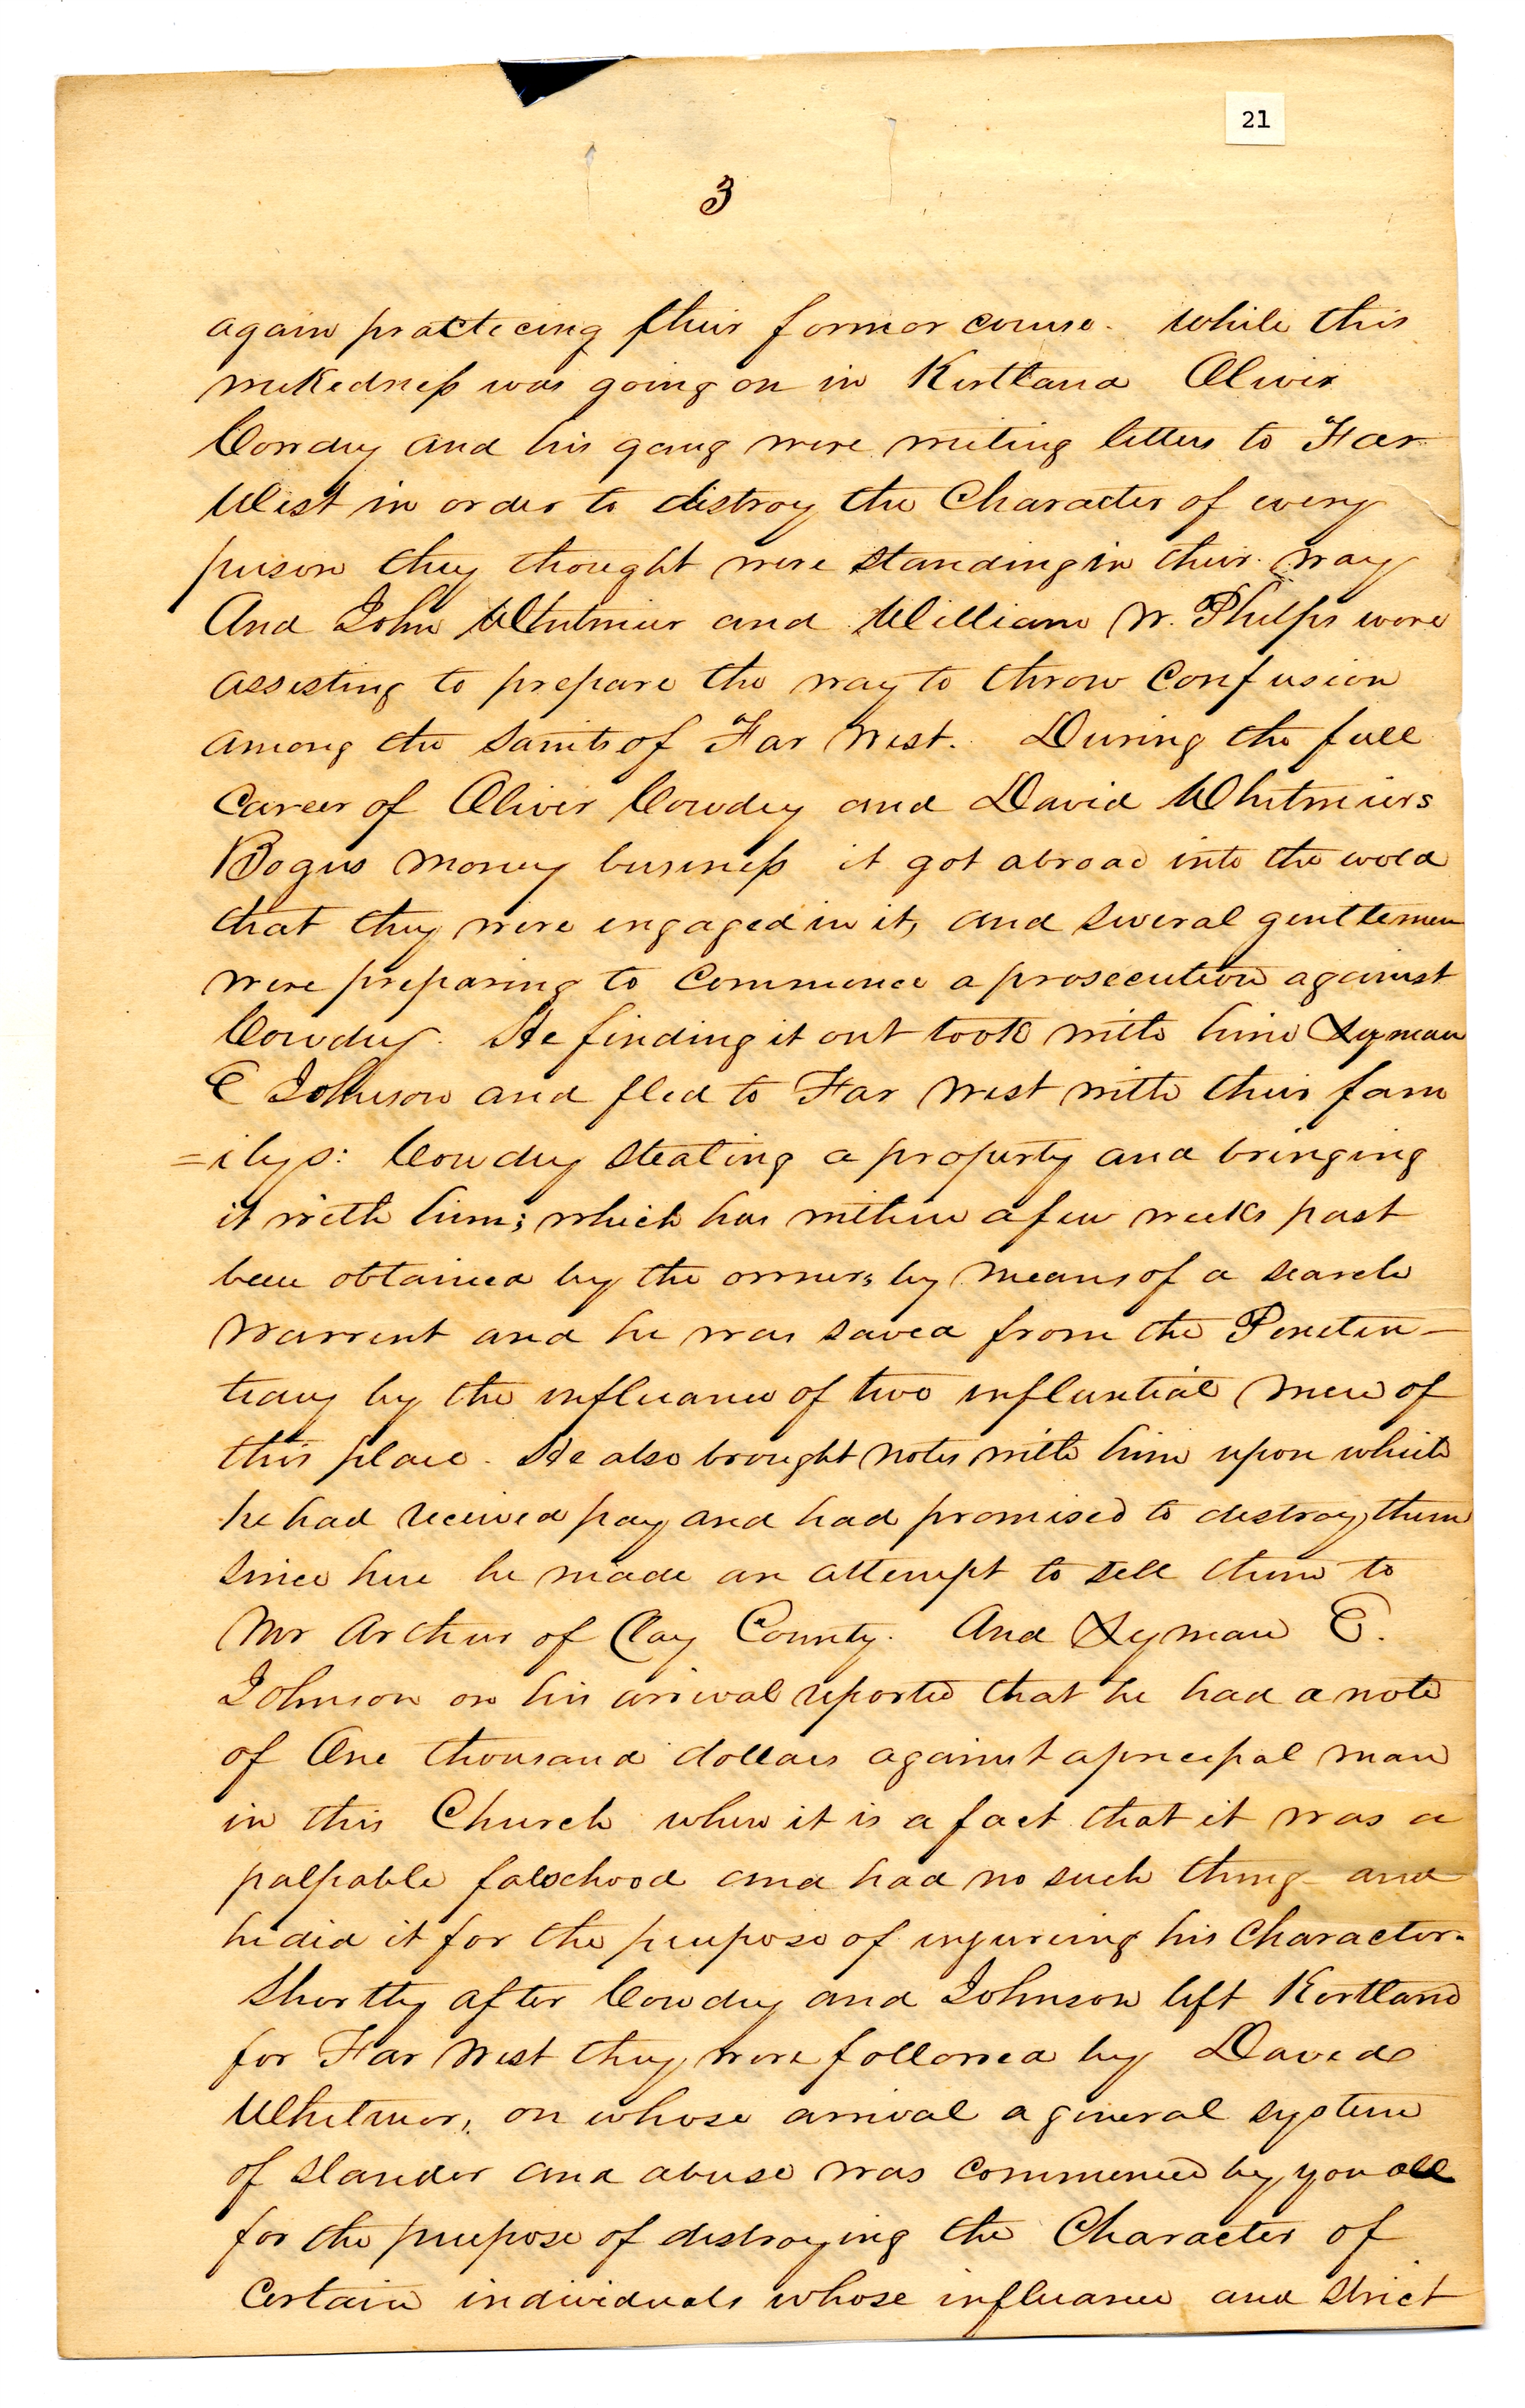 21
3
again practiceing their former course. While this
wickedness was going on in Kirtland Oliver
Cowdry and his gang were writing letters to Far
West in order to distroy the Character of every
person they thought were standing in their way
And John Whitmier and William W. Phelps were
assesting to prepare the way to throw Confusion
among the Saints of Far West. During the full
Career of Oliver Cowdry and David Whitmiers
Bogus money business it got abroad into the world
that they were engaged in it, and several gentlemen
were preparing to Commence a prosecution against
Cowdry. He finding it out took with him Lyman
E Johnson and fled to Far West with their fam
=ilys: Cowdry stealing a property and bringing
it with him; which has within a few weeks past
been obtained by the owner, by means of a search
warrent and he was saved from the Peneten-
teary by the influance of two influntial men of
this place. He also brought notes with him upon which
he had received pay and had promised to destroy them
since here he made an attempt to sell them to
Mr Arthur of Clay County. And Lyman E.
Johnson on his arrival reported that he had a note
of One thousand dollars against a princepal man
in this Church when it is a fact that it was a
palpable falschood and had no such thing and
he did it for the purpose of injureing his Character.
Shortly after Cowdry and Johnson left Kirtland
for Far West they were followed by David
Whitmer, on whose arrival a general system
of slander and abuse was commenced by you all
for the purpose of destroying the Character of
Certain individuals whose influance and strict